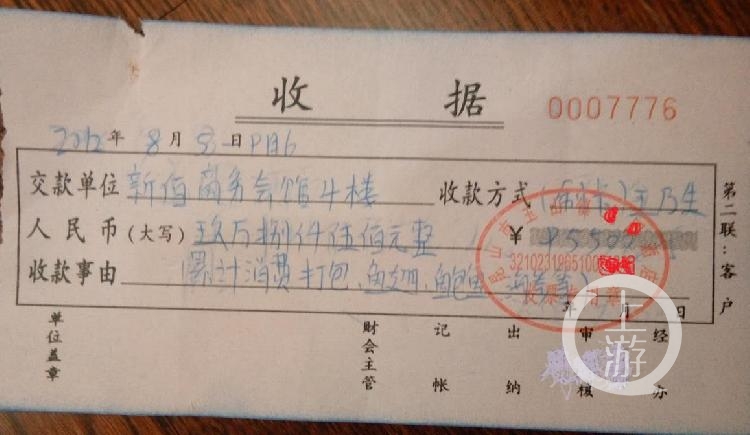 收据 0007776
2012年8月5日
交款单位 新佰商务会馆4楼 收款方式 王乃生
人民币(大写) 玖万捌仟伍佰元整 ¥
收款事由 (累计消费打包、鱼翅、鲍鱼
年 月 日
第二联:客户
单位盖章 财会主管 记帐 出纳 审核 经办
上游